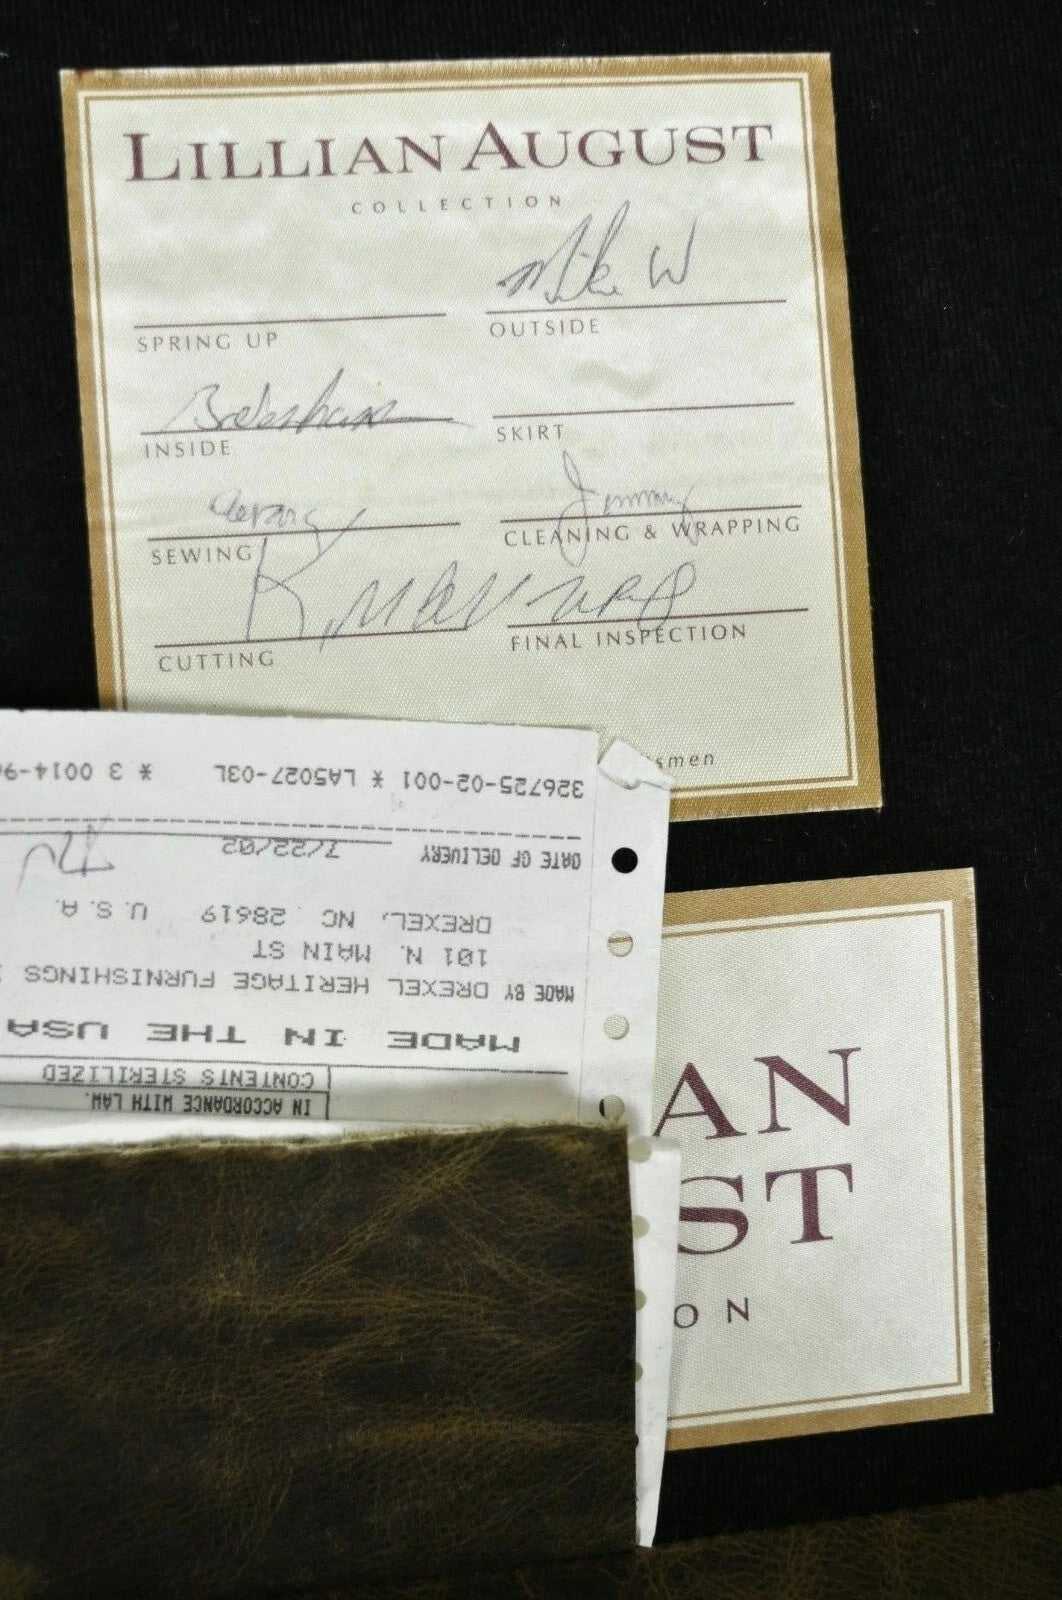 LILLIAN AUGUST
COLLECTION
Mike W
SPRING UP
OUTSIDE
INSIDE
SKIRT
Jimmy
SEWING
CLEANING & WRAPPING
K.
CUTTING
FINAL INSPECTION
smen
IN ACCORDANCE WITH LAW.
CONTENTS STERILIZED
MADE IN THE USA
MADE BY DREXEL HERITAGE FURNISHINGS
101 N. MAIN ST
DREXEL, NC 28619 U.S.A.
DATE OF DELIVERY 7/22/02
326725-02-001 * LA5027-03L * 3 0014-9
AN
ST
ON